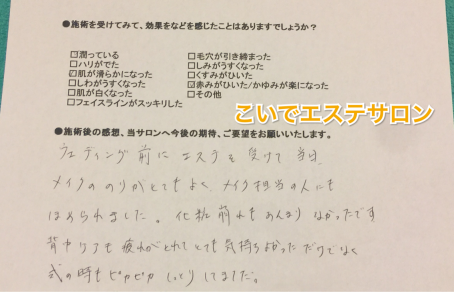 ●施術を受けてみて、効果をなどを感じたことはありますでしょうか？
□潤っている
□ハリがでた
☑肌が滑らかになった
□しわがうすくなった
□肌が白くなった
□フェイスラインがスッキリした
□毛穴が引き締まった
□しみがうすくなった
□くすみがひいた
☑赤みがひいた/かゆみが楽になった
□その他
こいでエステサロン
●施術後の感想、当サロンへ今後の期待、ご要望をお願いいたします。
ウェディング前にエステを受けて当日、
メイクののりがとてもよく、メイク担当の人にも
ほめられました。化粧崩れもあんまりなかったです
背中リフも疲れがとれてとても気持ちよかっただけでなく
式の時もピカピカしっとりしてました。